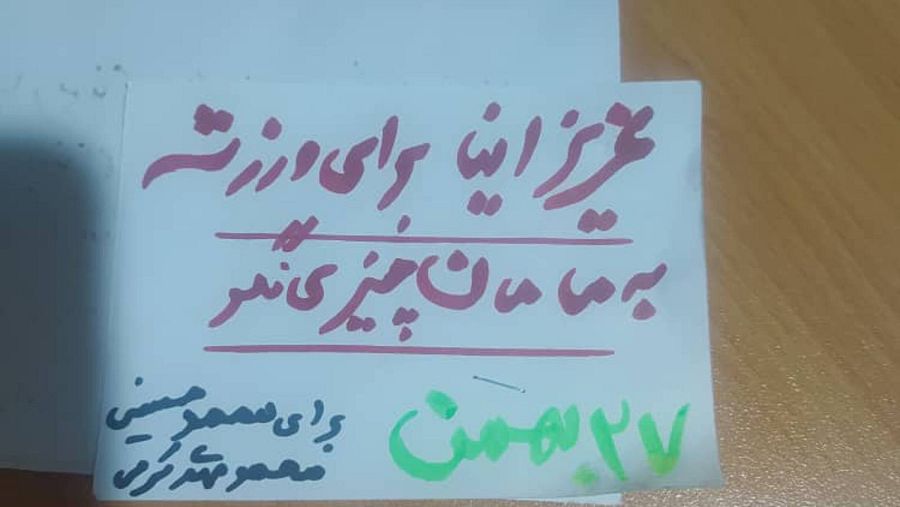 عزیز اینا برای ورزشه
به مامان چیزی نگو
۲۷ بهمن
برای محمد حسینی
محمد